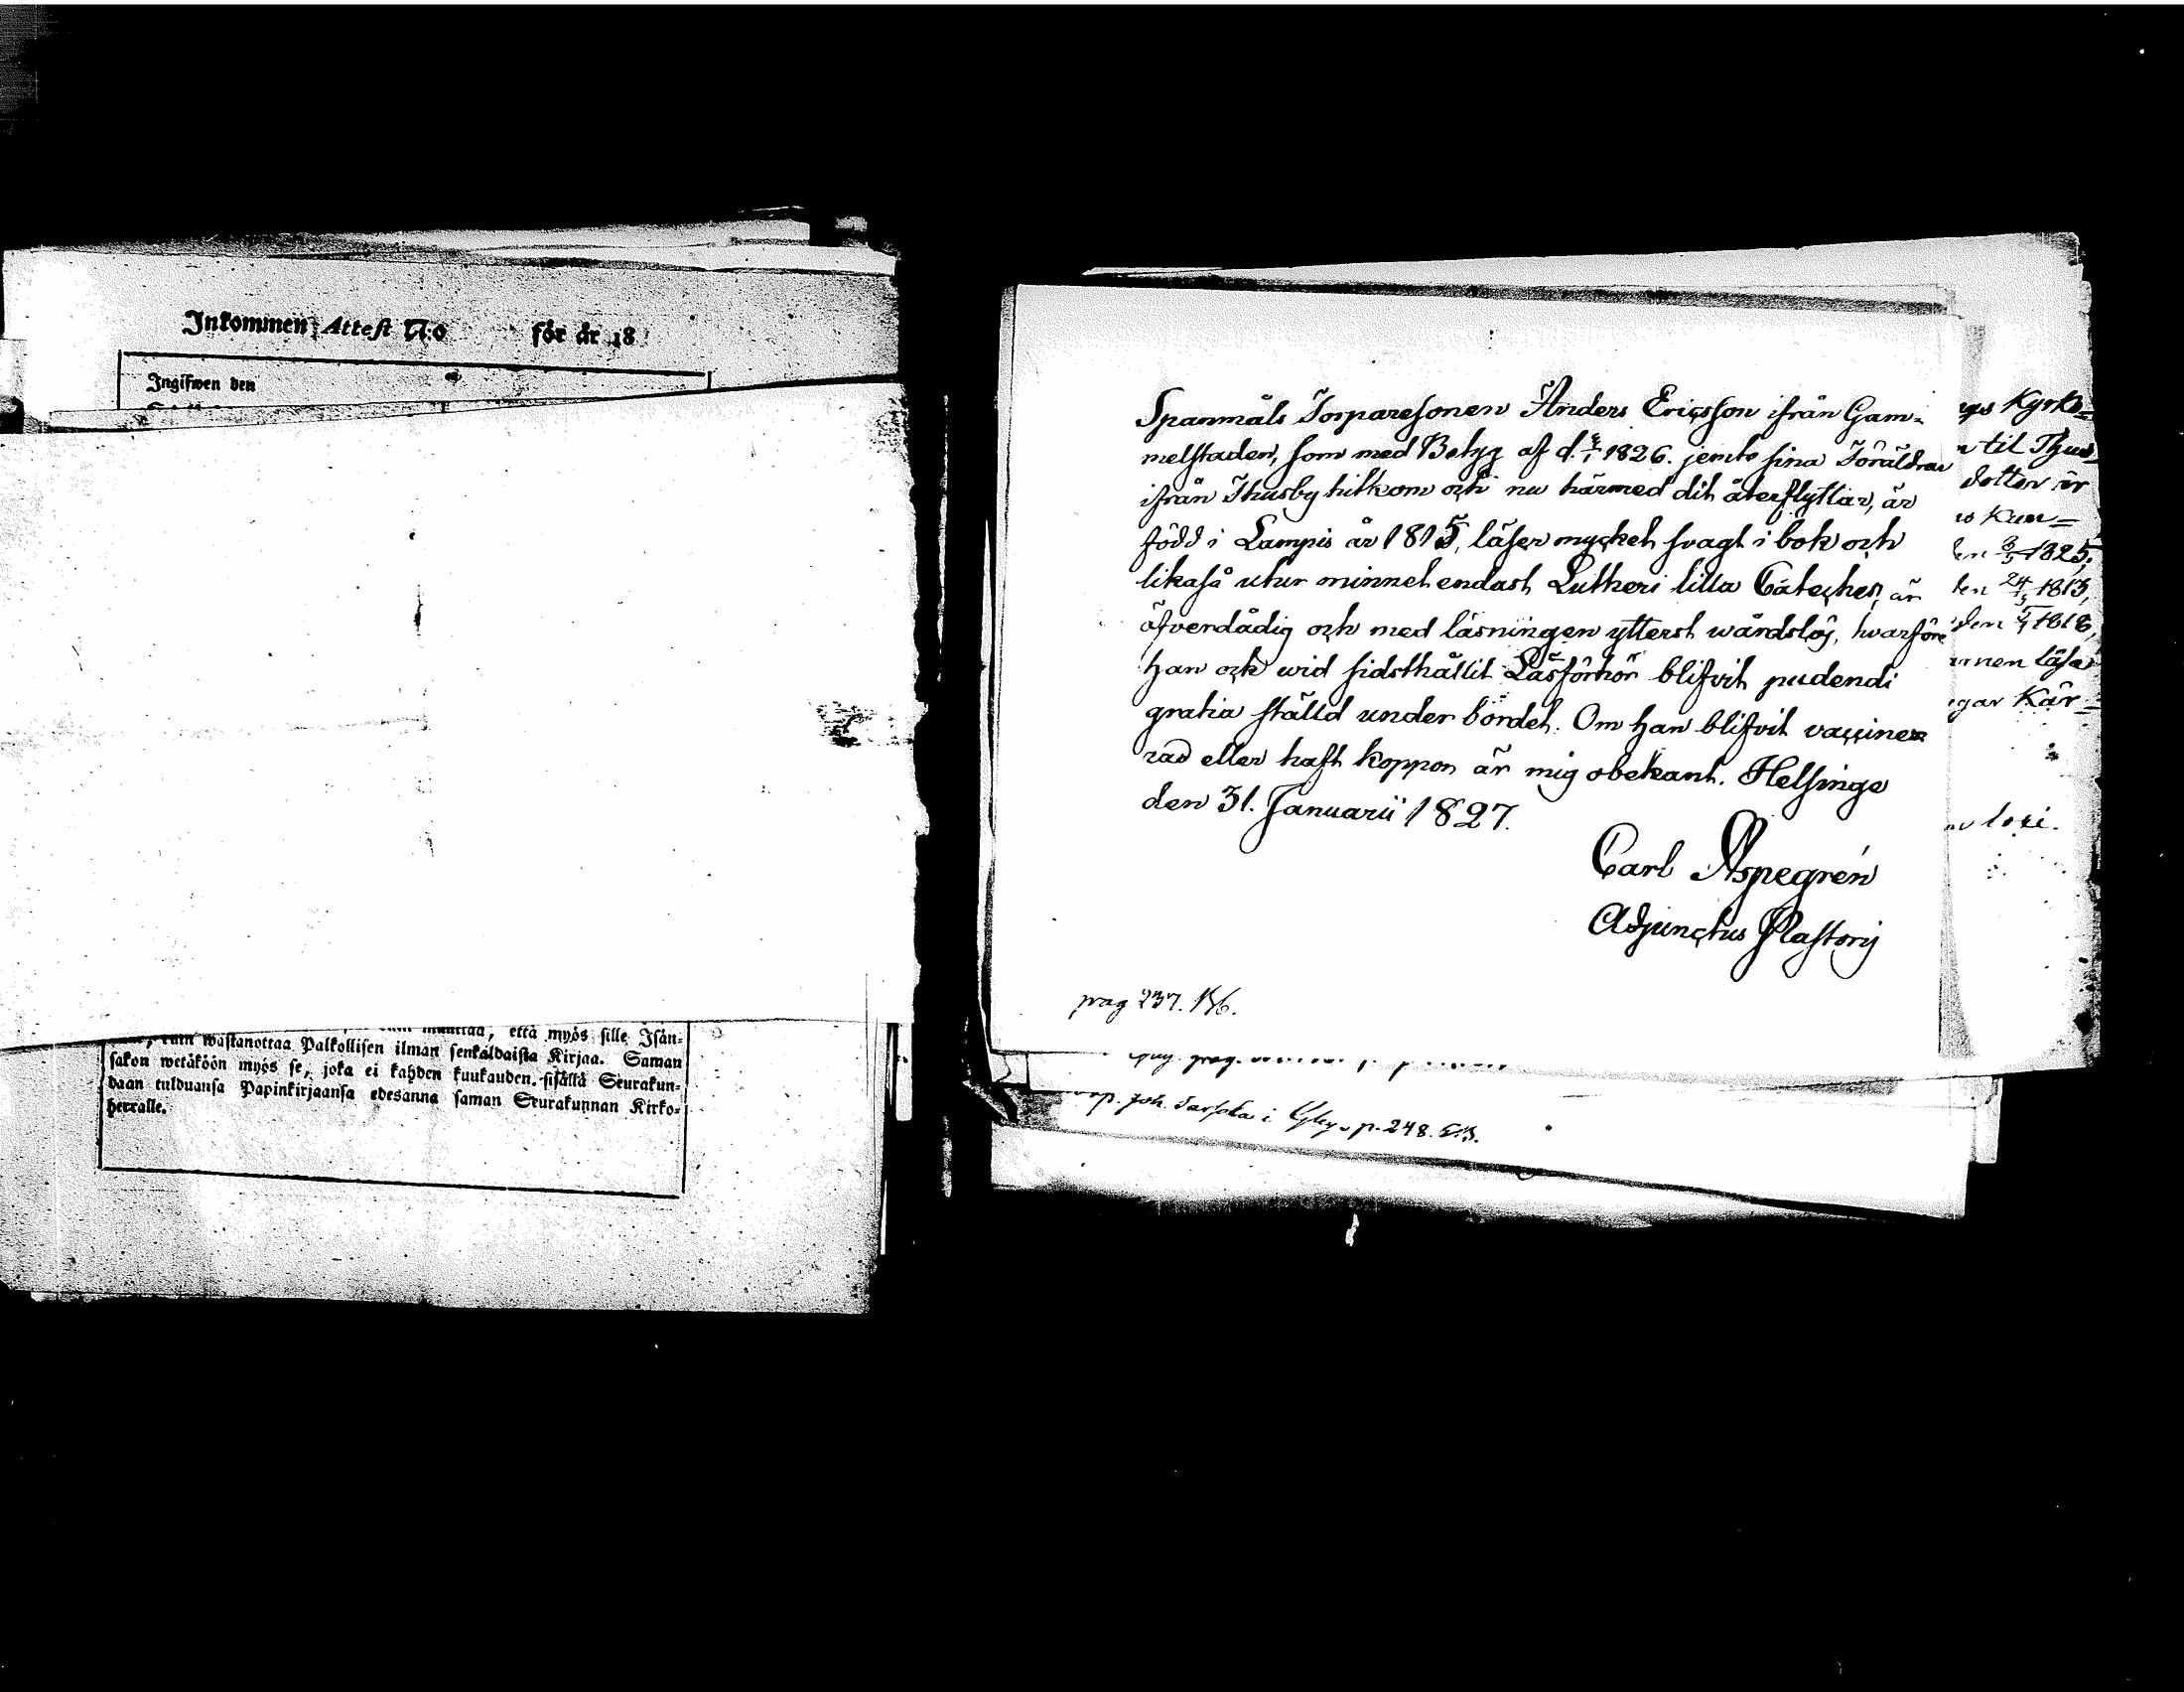 Inkommen Attest N:o för år 18
Ingifwen den
muuttaa, että myös sille Isän-
wastanottaa Palkollisen ilman senkaldaista Kirjaa. Saman
sakon wetäköön myös se, joka ei kahden kuukauden sisällä Seurakun-
daan tulduansa Papinkirjaansa edesanna saman Seurakunnan Kirko-
herralle.
Spanmåls Torparesonen Anders Ericsson ifrån Gam-
melstaden, som med Betyg af d. 1826. jemte sina Föräldrar
ifrån Thusby hitkom och nu härmed dit återflyttar, är
född i Lampis år 1815, läser mycket svagt i bok och
likaså utur minnet endast Lutheri lilla Cateches, är
öfverdådig och med läsningen ytterst wårdslös, hvarföre
han ock wid sidsthållit Läsförhör blifvit pudendi
gratia ställd under bördet. Om han blifvit vaccine-
rad eller haft koppor är mig obekant. Helsinge
den 31. Januarii 1827.
Carl Aspegrén
Adjunctus Pastoris
pag 237.
Kyrko-
til Thus-
dotter är
Kun-
1825;
24 1813,
den 1818,
läsa
Kär-
loxi.
p. 248.